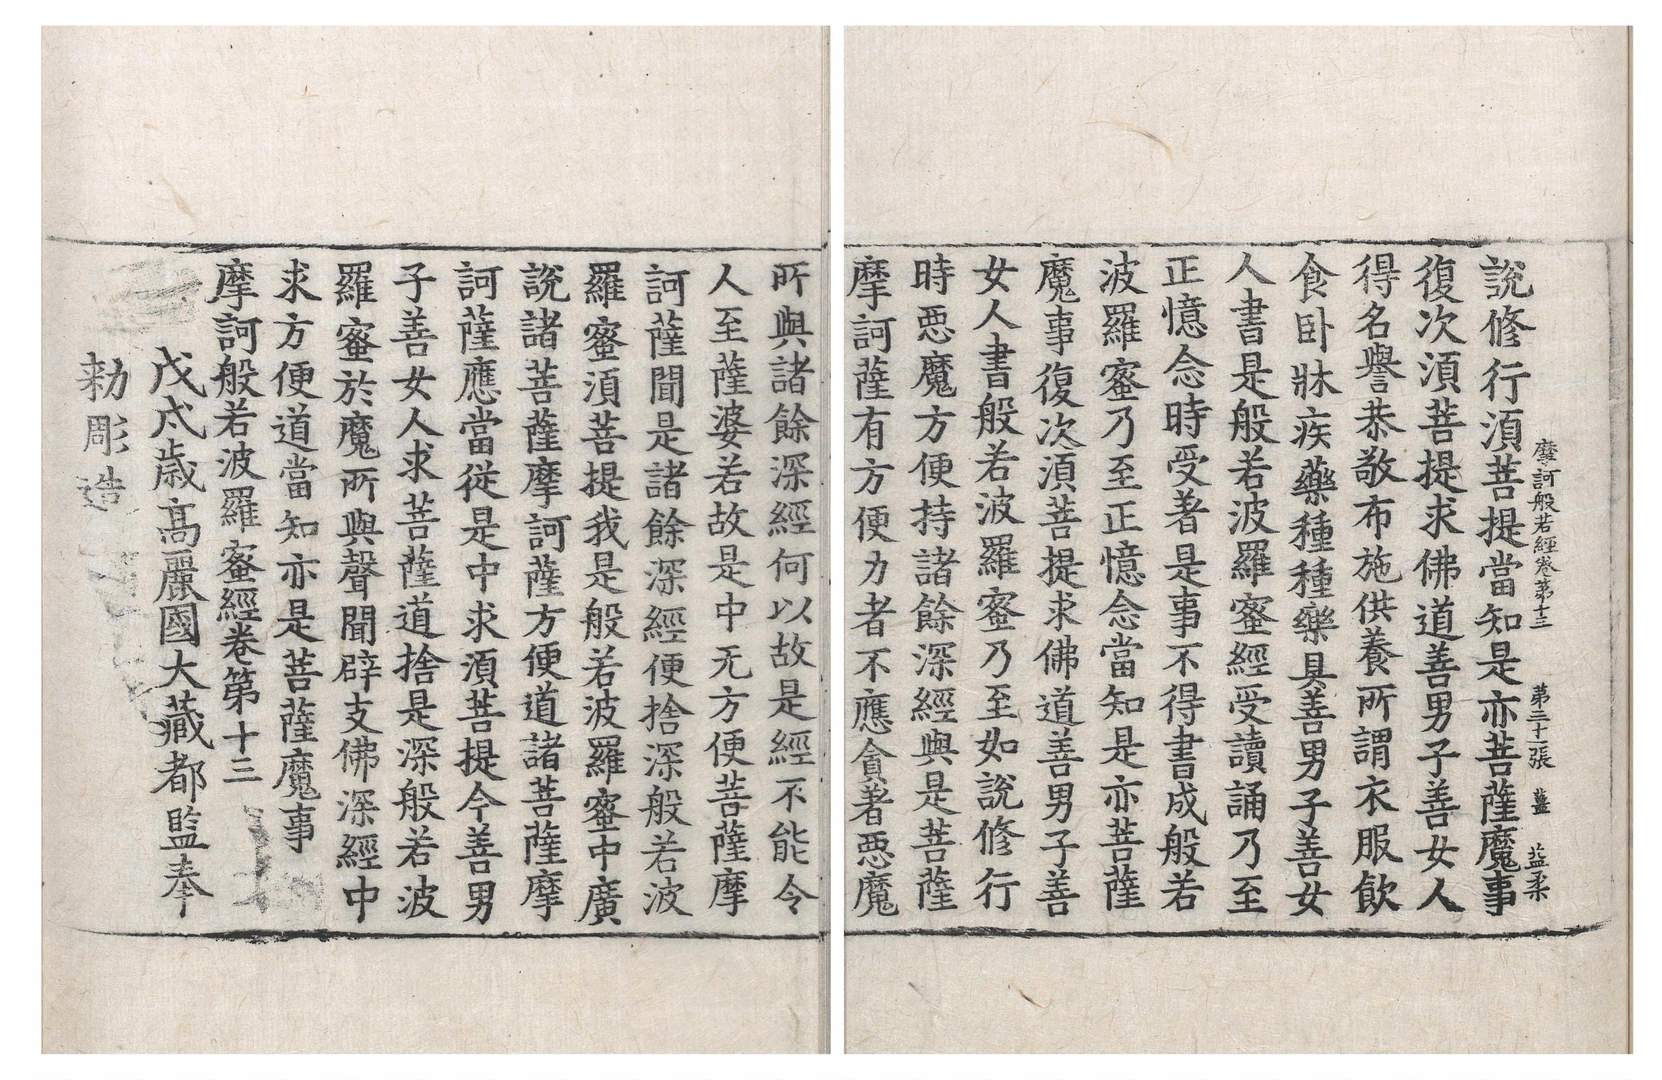 摩訶般若經卷第十三 第三十一張 薑 益柔
說修行須菩提當知是亦菩薩魔事
復次須菩提求佛道善男子善女人
得名譽恭敬布施供養所謂衣服飮
食卧牀疾藥種種樂具善男子善女
人書是般若波羅蜜經受讀誦乃至
正憶念時受著是事不得書成般若
波羅蜜乃至正憶念當知是亦菩薩
魔事復次須菩提求佛道善男子善
女人書般若波羅蜜乃至如說修行
時惡魔方便持諸餘深經與是菩薩
摩訶薩有方便力者不應貪著惡魔
所與諸餘深經何以故是經不能令
人至薩婆若故是中无方便菩薩摩
訶薩聞是諸餘深經便捨深般若波
羅蜜須菩提我是般若波羅蜜中廣
說諸菩薩摩訶薩方便道諸菩薩摩
訶薩應當從是中求須菩提今善男
子善女人求菩薩道捨是深般若波
羅蜜於魔所與聲聞辟支佛深經中
求方便道當知亦是菩薩魔事
摩訶般若波羅蜜經卷第十三
戊戌歲高麗國大藏都監奉
勅彫造